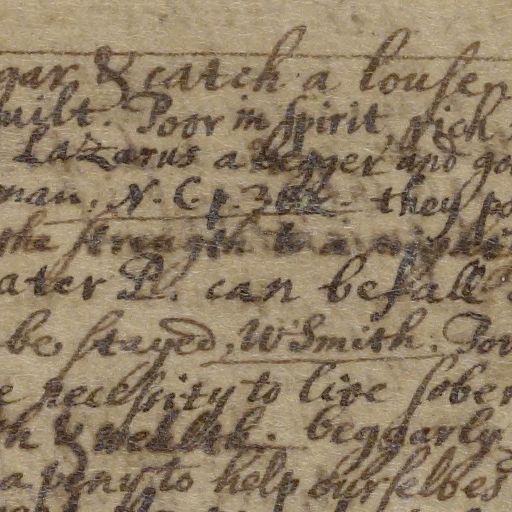 gar & catch a louse
uilt. Poor in spirit, rich
Lazarus a begger and go
man, N. C p. they po
the strength to a
ater P. can befall
be stayed, W Smith. Pov
e necessity to live sober
th & wealth. beggarly
a peny to help ourselves